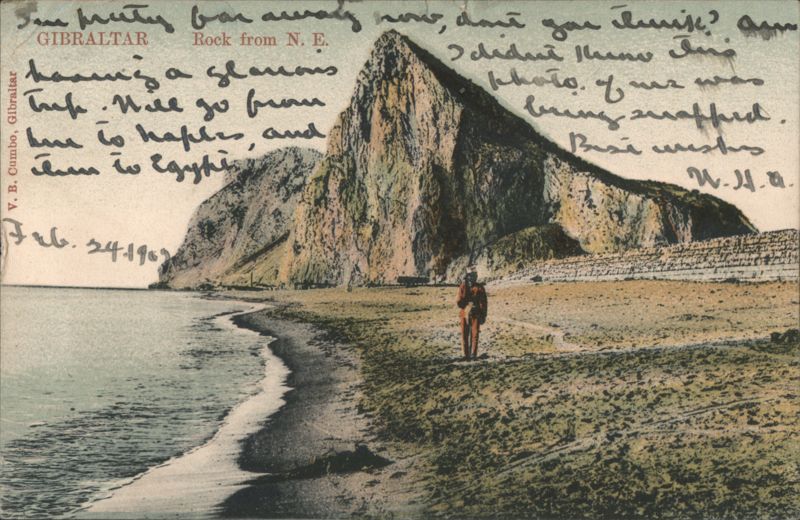 I'm pretty far away now, don't you think? Am
GIBRALTAR Rock from N. E.
having a glorious
trip. Will go from
here to Naples, and
then to Egypt.
I didn't know this
photo. of me was
being snapped.
Best wishes
Feb. 24. 190
V. B. Cumbo, Gibraltar